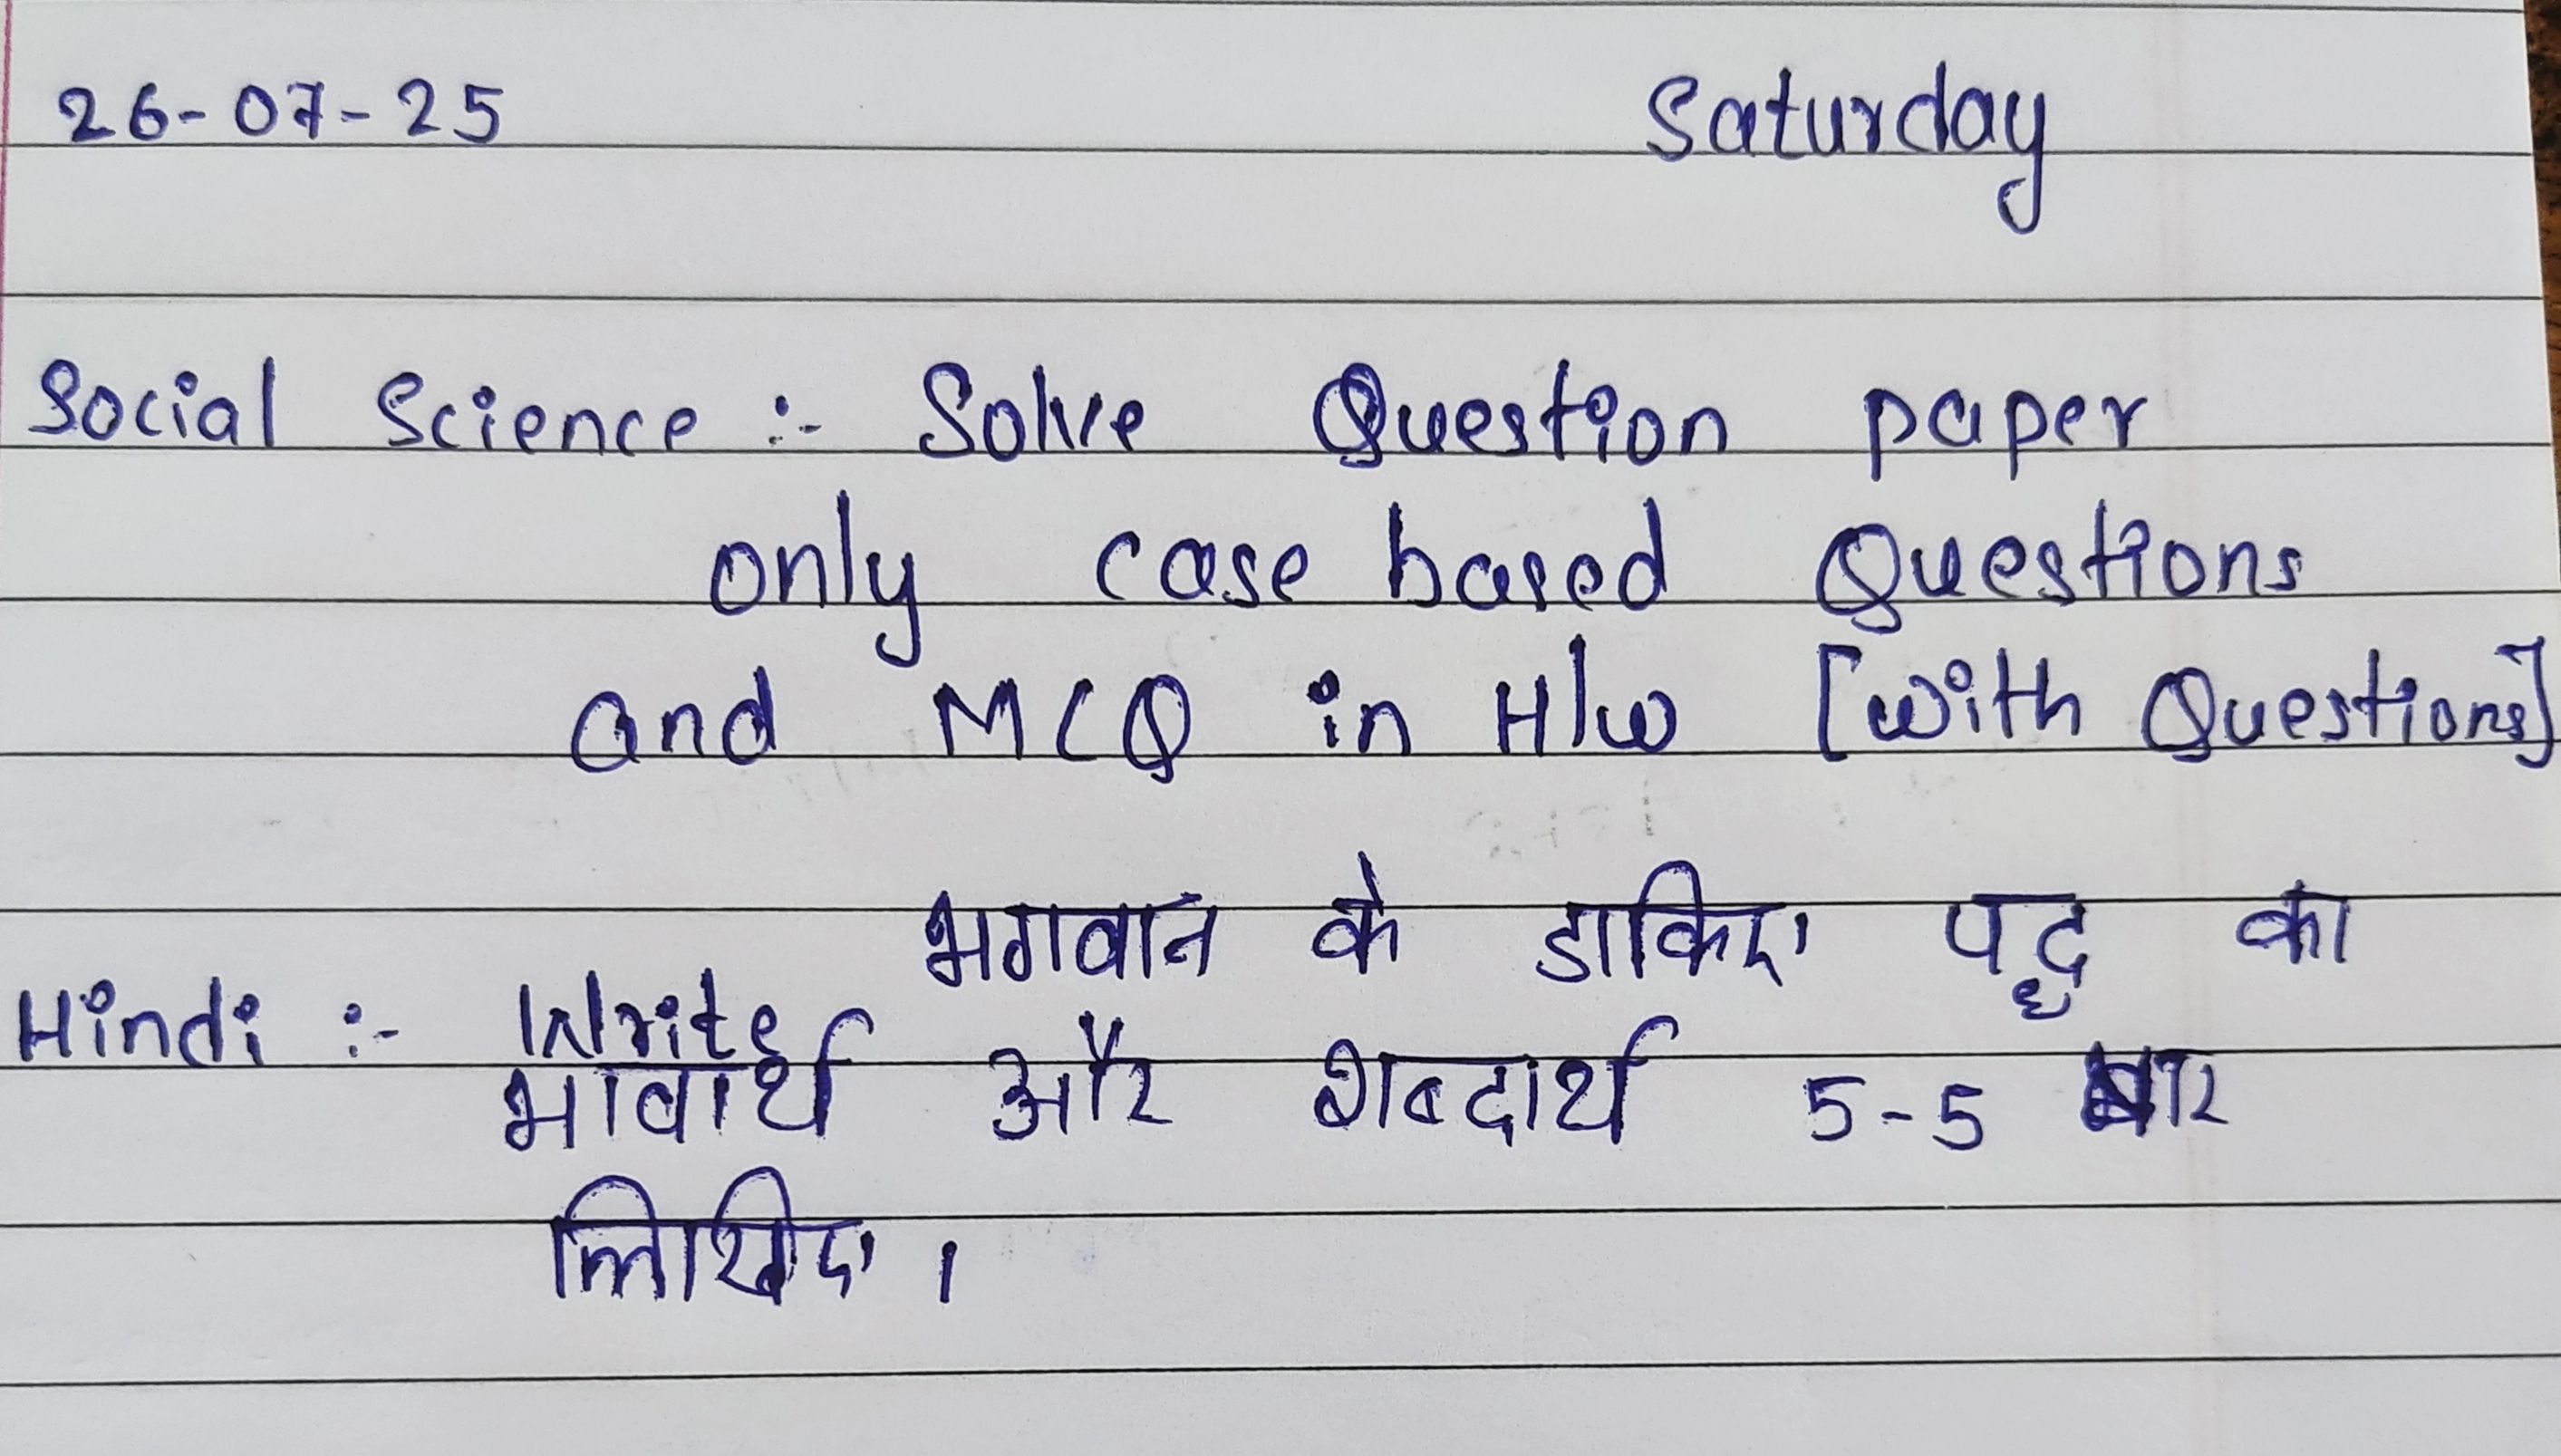 26-07-25 Saturday
Social Science :- Solve Question paper
only case based Questions
and MCQ in H/w [with Questions]
भगवान के डाकिए पद्द्य का
Hindi :- Write
भावार्थ और शब्दार्थ 5-5 बार
लिखिए।